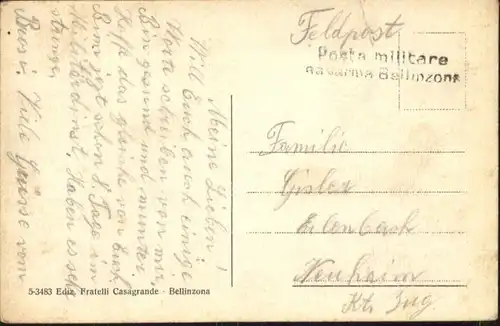 Meine Lieben!
Will Euch auch einige
Worte schreiben von mir.
Bin gesund und munter.
Hoffe das gleiche von Euch.
Bin jetzt schon 8 Tage im
Militärdienst, Haben es sch
strenge.
Bus i. Viele Grüsse vom
Feldpost
Posta militare
Bellinzona
Familie
Gisler
Erlenbach
Neuheim
Kt. Zug
5-3483 Ediz. Fratelli Casagrande - Bellinzona